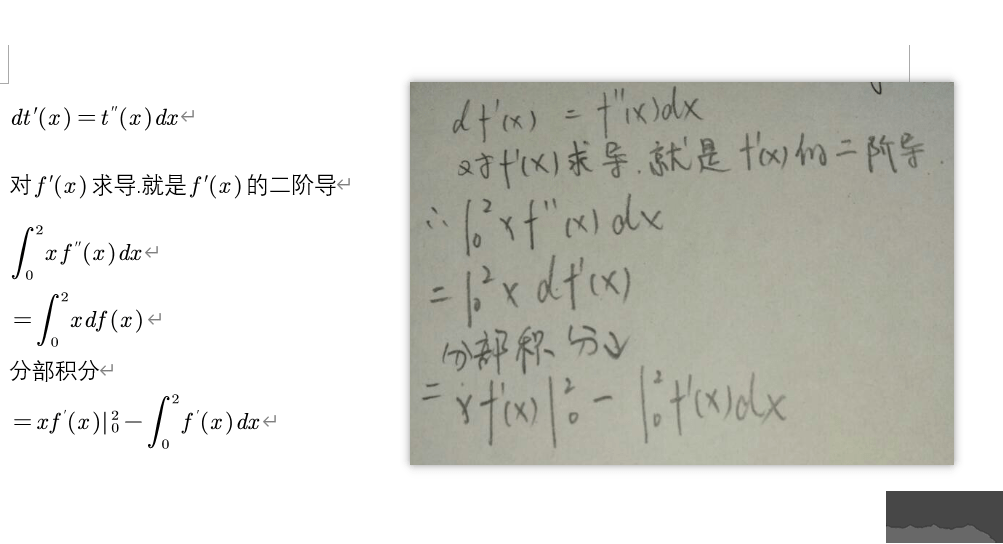 dt′(x)=t″(x)dx↵
对f′(x)求导.就是f′(x)的二阶导↵
∫₀²xf″(x)dx↵
=∫₀²xdf(x)↵
分部积分↵
=xf′(x)|₀²−∫₀²f′(x)dx↵
df′(x) = f″(x)dx
对f′(x)求导.就是f′(x)的二阶导.
∴∫₀²xf″(x)dx
=∫₀²x df′(x)
分部积分↓
=xf′(x)|₀²−∫₀²f′(x)dx